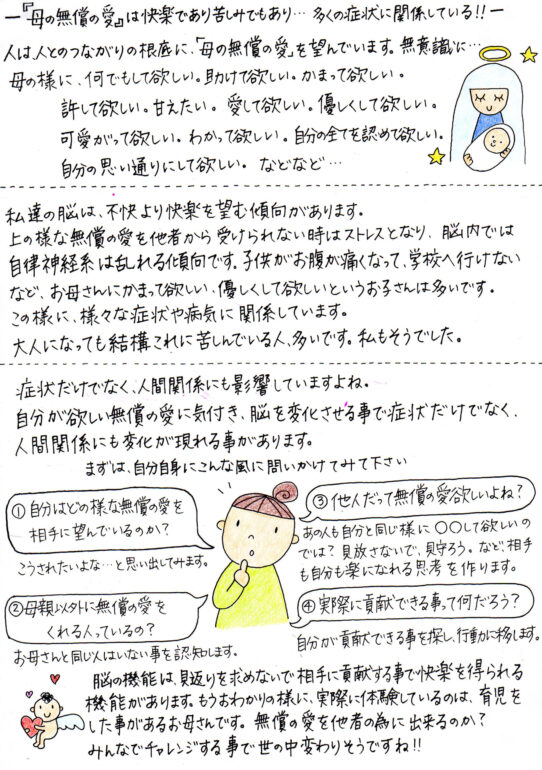 ー『母の無償の愛』は快楽であり苦しみでもあり… 多くの症状に関係している!!ー
人は人とのつながりの根底に、「母の無償の愛」を望んでいます。無意識に…
母の様に、何でもして欲しい。助けて欲しい。かまって欲しい。
許して欲しい。甘えたい。愛して欲しい。優しくして欲しい。
可愛がって欲しい。わかって欲しい。自分の全てを認めて欲しい。
自分の思い通りにして欲しい。などなど…
私達の脳は、不快より快楽を望む傾向があります。
上の様な無償の愛を他者から受けられない時はストレスとなり、脳内では
自律神経系は乱れる傾向です。子供がお腹が痛くなって、学校へ行けない
など、お母さんにかまって欲しい、優しくして欲しいというお子さんは多いです。
この様に、様々な症状や病気に関係しています。
大人になっても結構これに苦しんでいる人、多いです。私もそうでした。
症状だけでなく、人間関係にも影響していますよね。
自分が欲しい無償の愛に気付き、脳を変化させる事で症状だけでなく、
人間関係にも変化が現れる事があります。
まずは、自分自身にこんな風に問いかけてみて下さい
①自分はどの様な無償の愛を
相手に望んでいるのか?
こうされたいよな…と思い出してみます。
②母親以外に無償の愛を
くれる人っているの?
お母さんと同じ人はいない事を認知します。
③他人だって無償の愛欲しいよね?
あの人も自分と同じ様に〇〇して欲しいの
では?見放さないで、見守ろう。など、相手
も自分も楽になれる思考を作ります。
④実際に貢献できる事って何だろう?
自分が貢献できる事を探し、行動に移します。
脳の機能は、見返りを求めないで相手に貢献する事で快楽を得られる
機能があります。もうおわかりの様に、実際に体験しているのは、育児を
した事があるお母さんです。無償の愛を他者の為に出来るのか?
みんなでチャレンジする事で世の中変わりそうですね!!